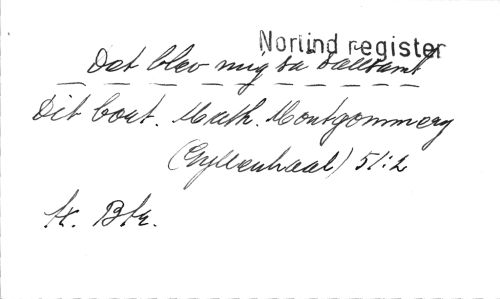 Norlind register
Det blev mig så sällsamt
Dit bort. Math. Montgommery
(Gyllenhaal) 51:2